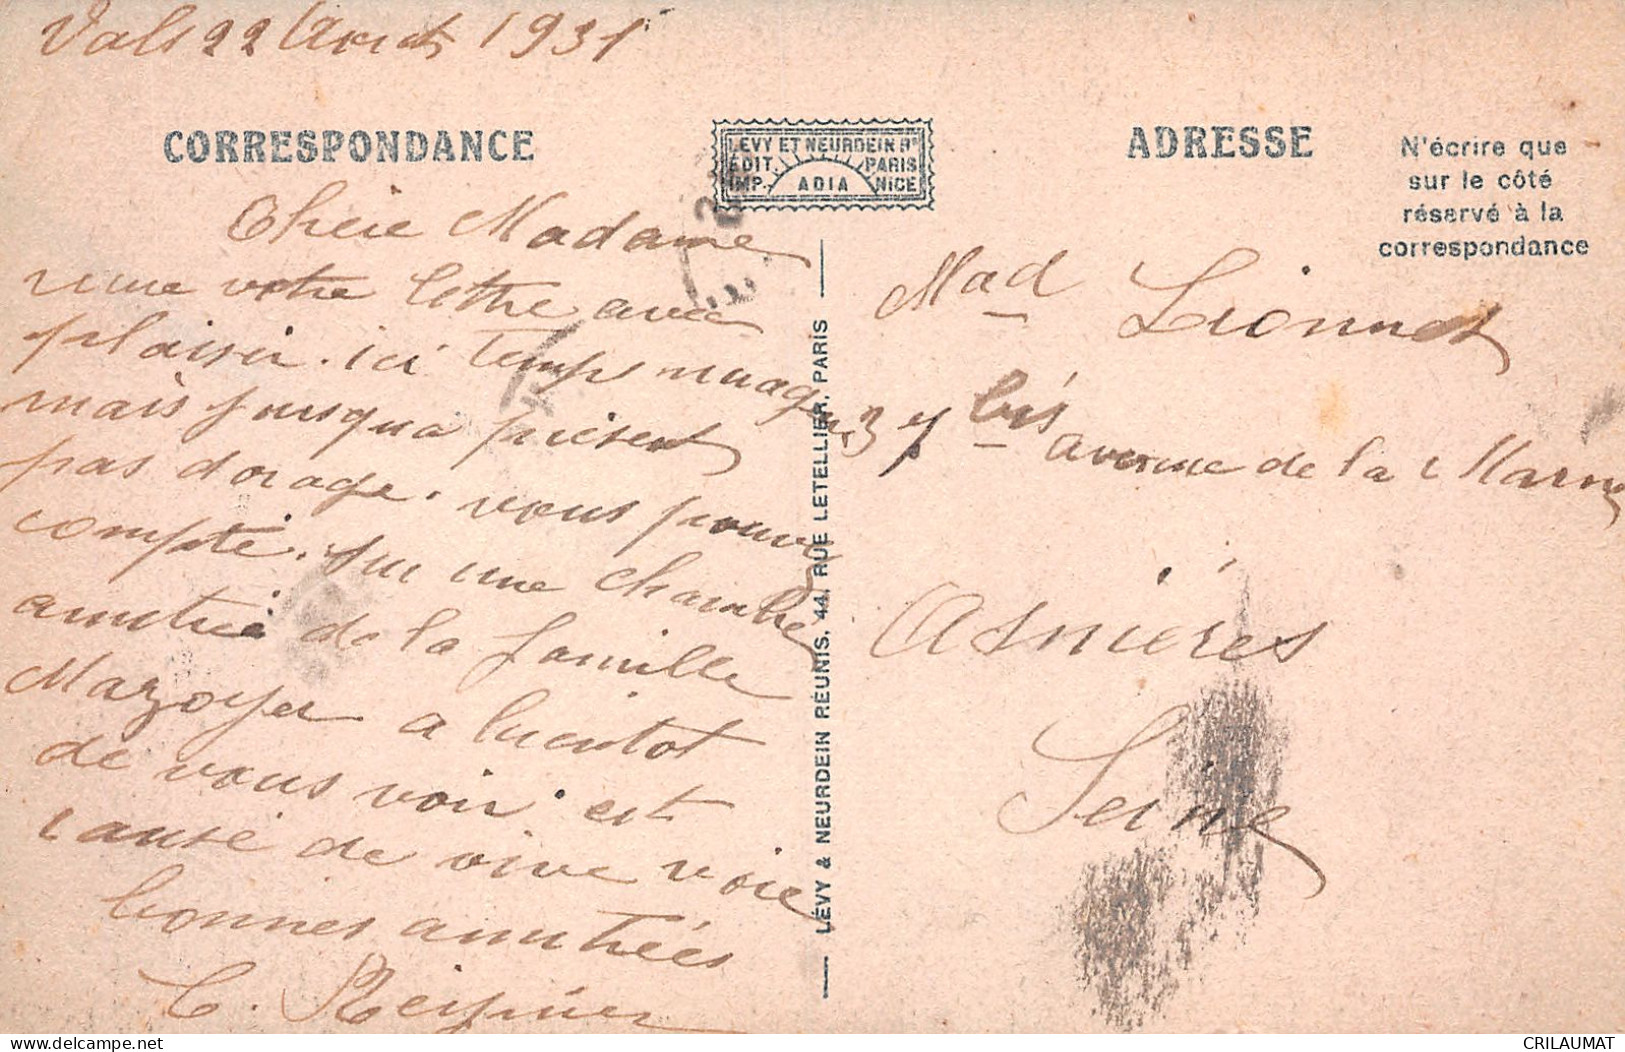 Vals 22 Août 1931
CORRESPONDANCE
LEVY ET NEURDEIN Rs
EDIT. PARIS
IMP. ADIA NICE
ADRESSE
N'écrire que
sur le côté
réservé à la
correspondance
Cheie Madame
votre lettre avec
plaisir. ici temps nuageux
mais jusqua présent
pas dorage. vous pouvez
compté. sur une chambre
amitrié de la famille
Mazoyer a bientot
de vous voir est
cause de vive voie
bonnes amitiées
C.
LÉVY & NEURDEIN RÉUNIS, 44, RUE LETELLIER, PARIS
Mad Lionnet
37 bis avenue de la Marne
Asnières
Seine
CRILAUMAT